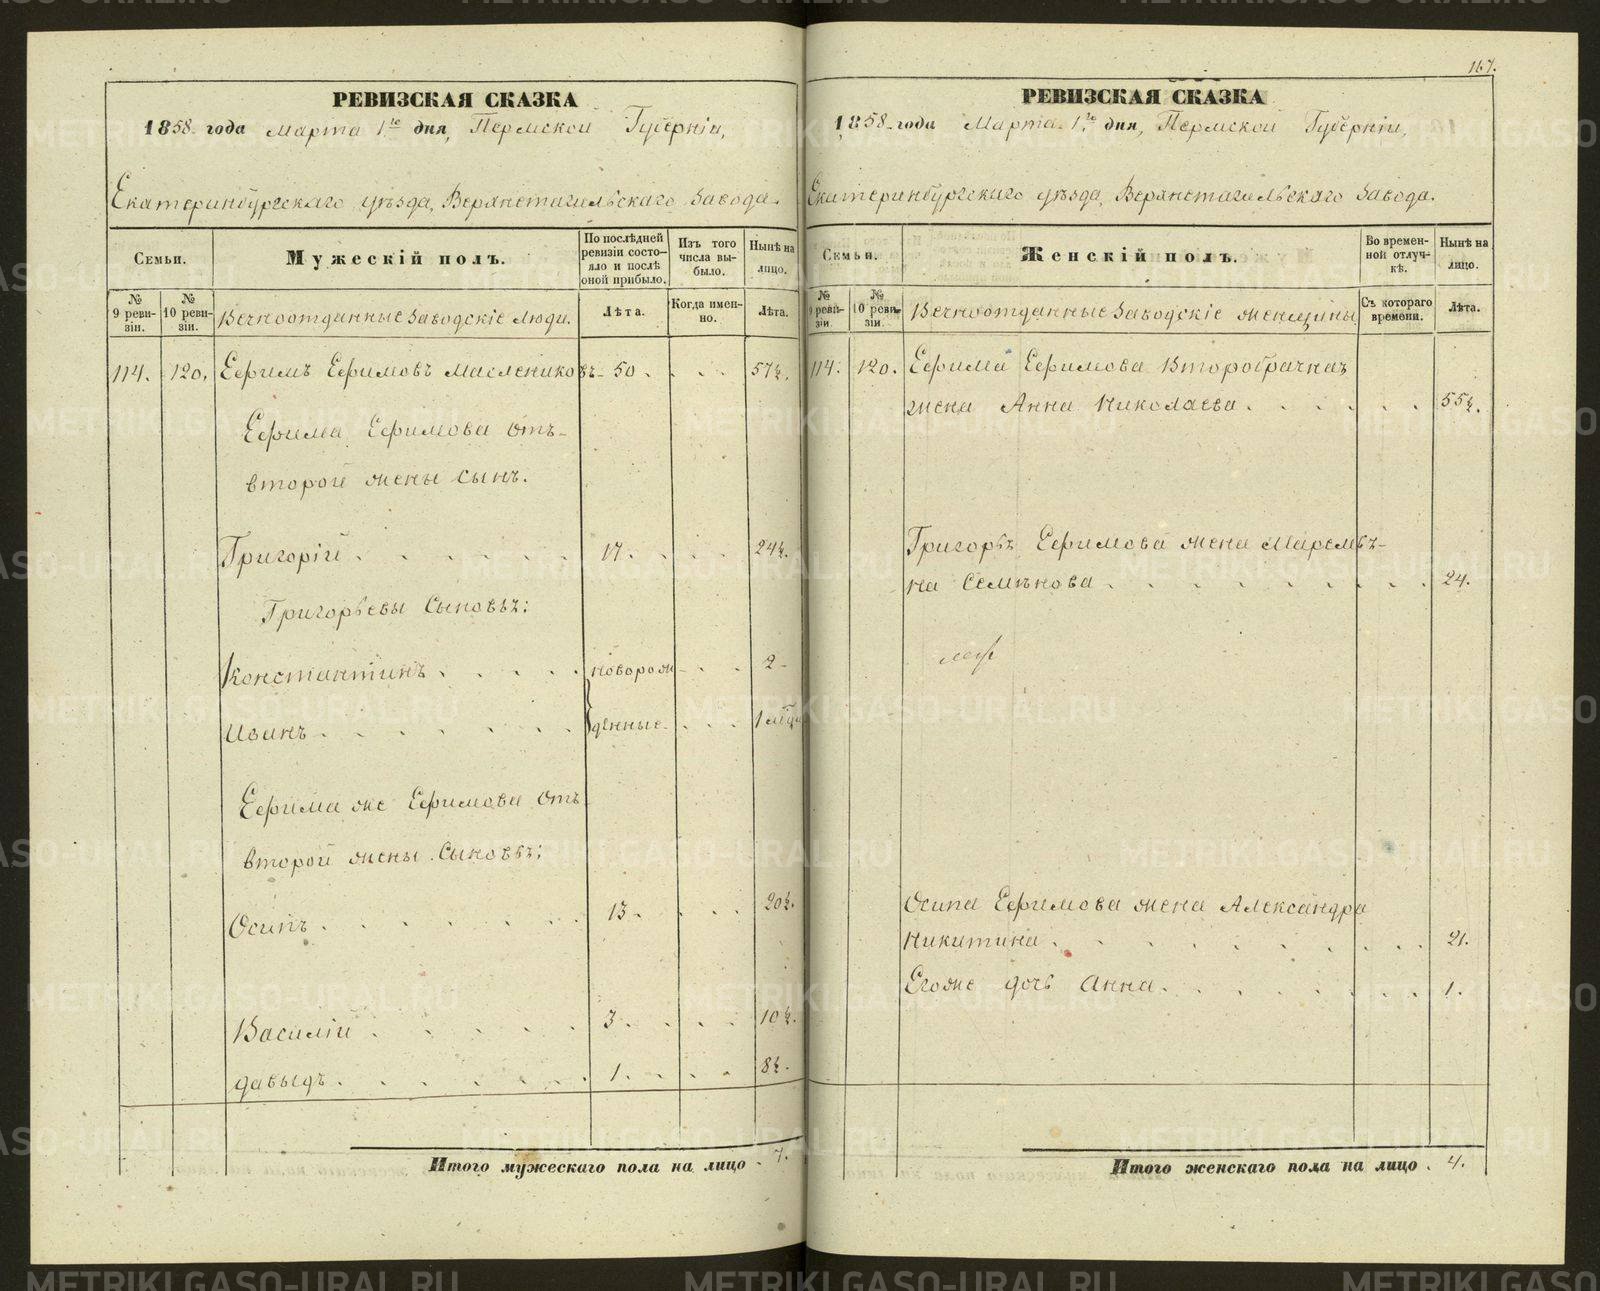 167.
РЕВИЗСКАЯ СКАЗКА
1858. года Марта 1го дня, Пермской Губерніи,
Екатеринбургскаго уѣзда, Верхнетагильскаго Завода.
Семьи.
Мужескій полъ.
По послѣдней ревизіи состояло и послѣ оной прибыло.
Изъ того числа выбыло.
Нынѣ на лицо.
№ 9 ревизіи.
№ 10 ревизіи.
Вечноотданные Заводскіе Люди.
Лѣта.
Когда именно.
Лѣта.
114. 120. Ефимъ Ефимовъ Маслениковъ 50 . . . . 57½.
Ефима Ефимова отъ
второй жены сынъ.
Григорій . . . . . . 17 . . . . 24½.
Григорьевы Сыновья:
Константинъ . . . . . новорож- . . 2
Иванъ . . . . . . . денные . . . 1 мѣца
Ефима же Ефимова отъ
второй жены Сыновья:
Осипъ . . . . . . 13 . . . . 20½.
Василій . . . . . 3 . . . . 10½.
Давыдъ . . . . . . . 1 . . . . 8½.
Итого мужескаго пола на лицо . 7.
РЕВИЗСКАЯ СКАЗКА
1858. года Марта 1го дня, Пермской Губерніи,
Екатеринбургскаго уѣзда, Верхнетагильскаго Завода.
Семьи.
Женскій полъ.
Во временной отлучкѣ.
Нынѣ на лицо.
№ 9 ревизіи.
№ 10 ревизіи.
Вечноотданные Заводскіе женщины
Съ котораго времени.
Лѣта.
114. 120. Ефима Ефимова Второбрачная
жена Анна Николаева . . . . . . 55½.
Григорья Ефимова жена Маремья-
на Семѣнова . . . . . . . . . 24.
Осипа Ефимова жена Александра
Никитина . . . . . . . . . 21.
Егоже дочь Анна . . . . . . . 1.
Итого женскаго пола на лицо . 4.
METRIKI.GASO-URAL.RU